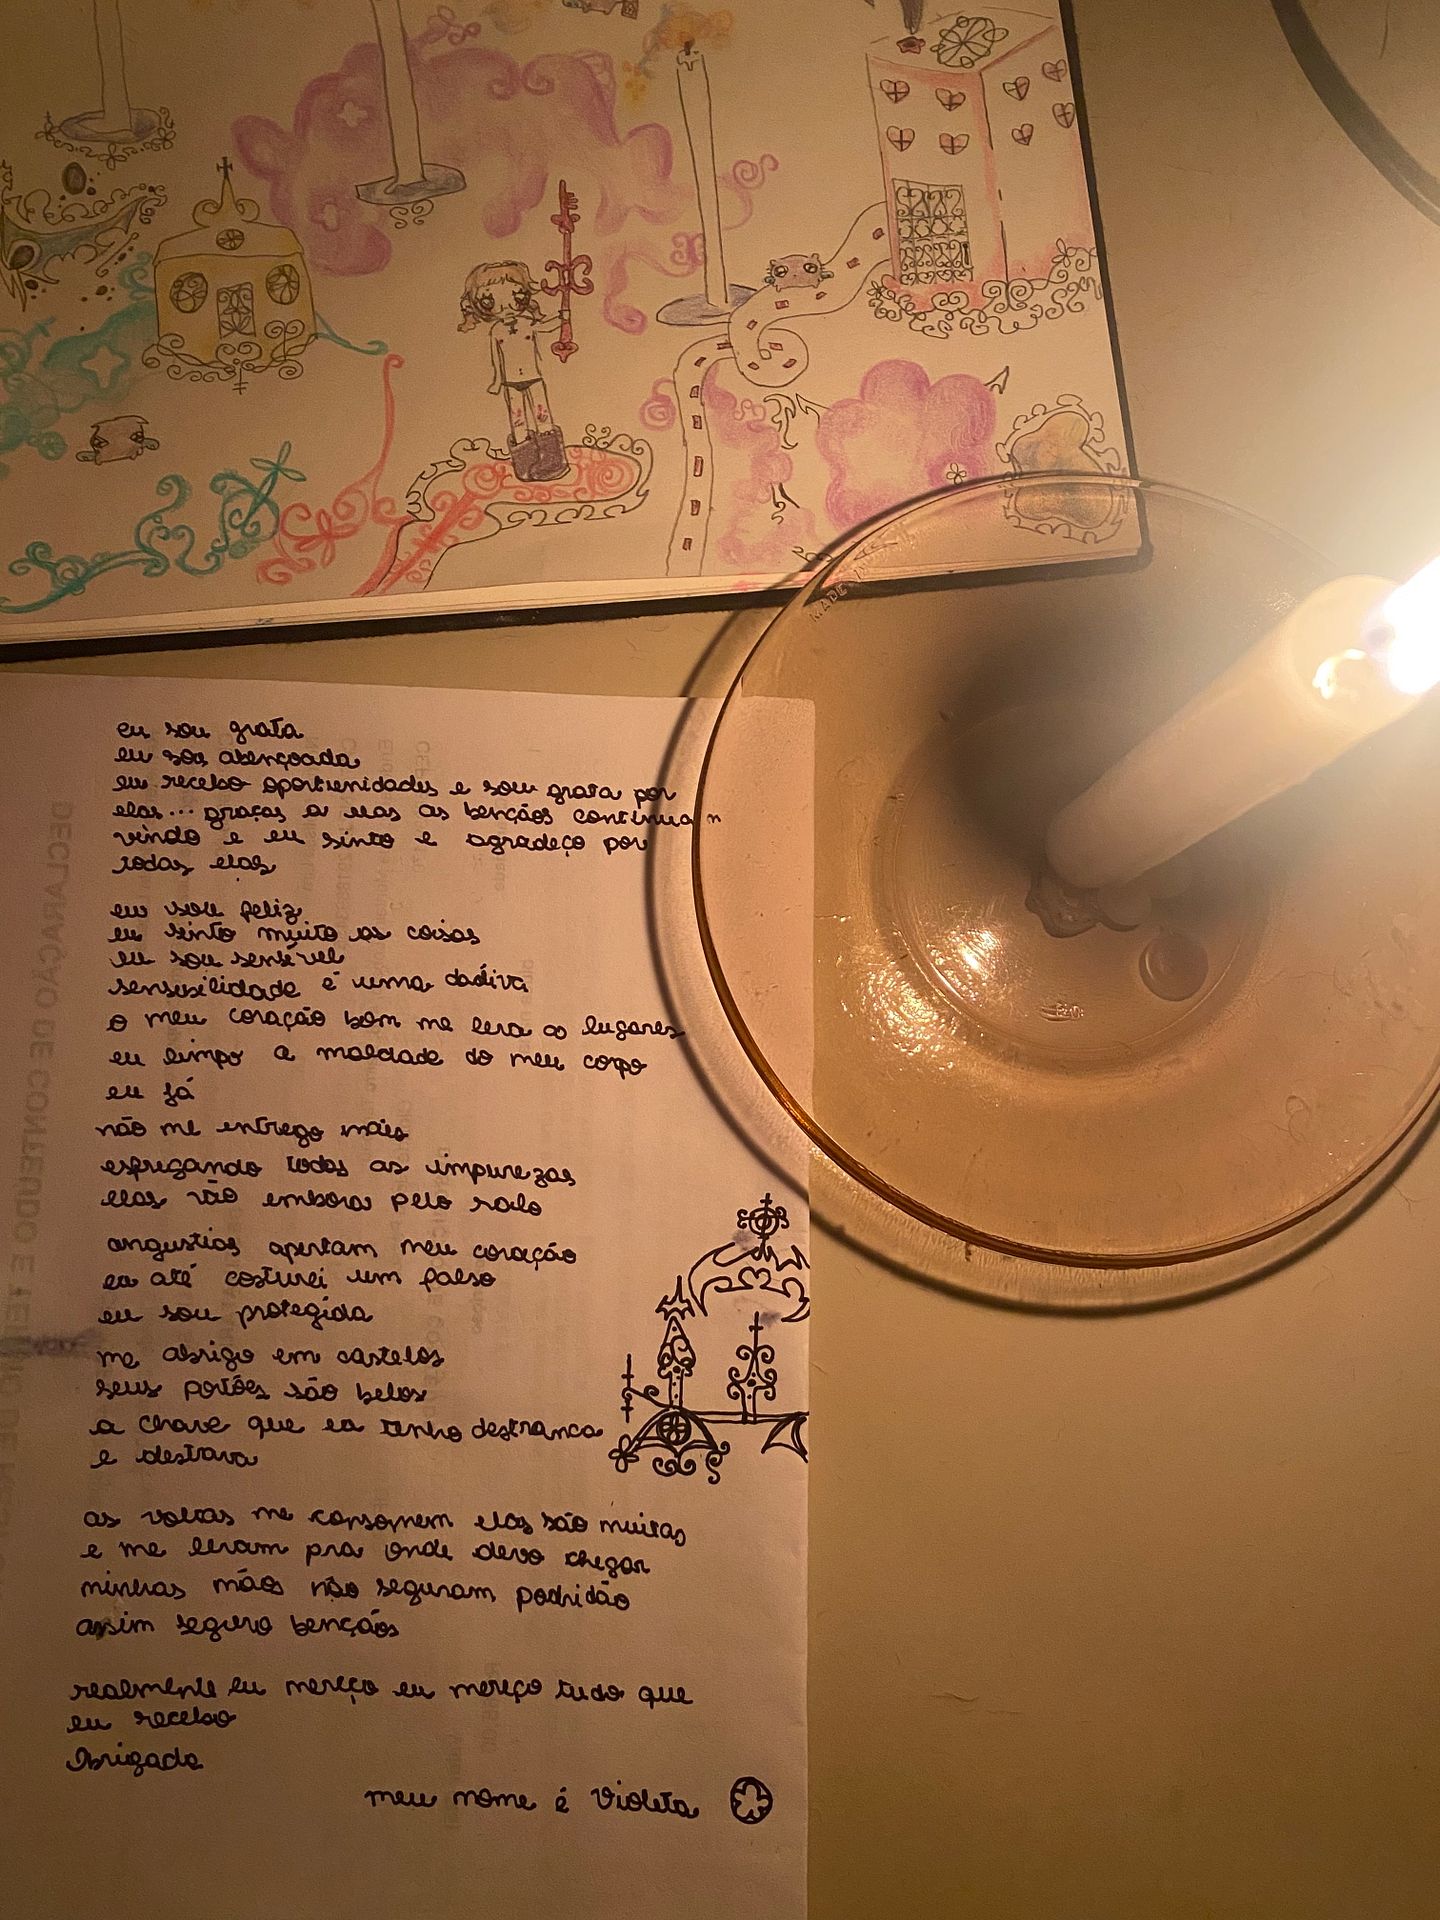 MADE
eu sou grata
eu sou abençoada
eu recebo oportunidades e sou grata por
elas... graças a elas as benções continuam
vindo e eu sinto e agradeço por
todas elas
eu sou feliz
eu sinto muito as coisas
eu sou sensível
sensibilidade é uma dádiva
o meu coração bom me leva a lugares
eu limpo a maldade do meu corpo
eu já
não me entrego mais
esfregando todas as impurezas
elas vão embora pelo ralo
angustias apertam meu coração
eu até costurei um falso
eu sou protegida
me abrigo em castelos
seus portões são belos
a chave que eu tenho destranca
e destrava
as voltas me consomem elas são muitas
e me levam pra onde devo chegar
minhas mãos não seguram podridão
assim seguro bençãos
realmente eu mereço eu mereço tudo que
eu recebo
Obrigada
meu nome é Violeta
DECLARAÇÃO DE CONTEÚDO E